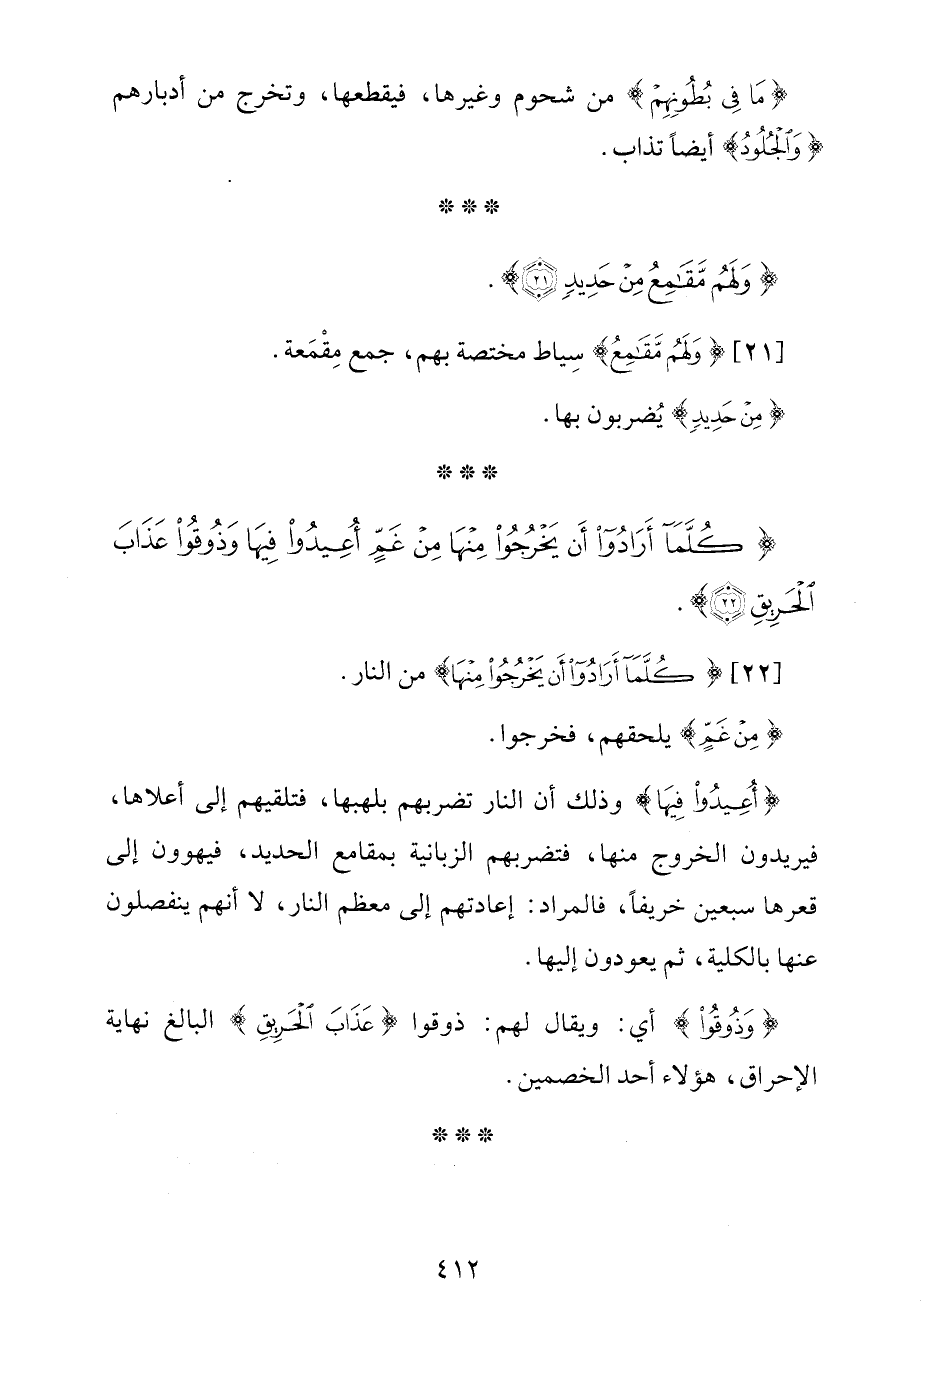 ﴿مَا فِي بُطُونِهِمْ﴾ من شحوم وغيرها، فيقطعها، وتخرج من أدبارهم
﴿وَالْجُلُودُ﴾ أيضاً تذاب.
* * *
﴿وَلَهُم مَّقَـٰمِعُ مِنْ حَدِيدٍ ٢١﴾.
[٢١] ﴿وَلَهُم مَّقَـٰمِعُ﴾ سِياط مختصة بهم، جمع مِقْمَعة.
﴿مِنْ حَدِيدٍ﴾ يُضربون بها.
* * *
﴿كُلَّمَآ أَرَادُوٓاْ أَن يَخْرُجُواْ مِنْهَا مِنْ غَمٍّ أُعِيدُواْ فِيهَا وَذُوقُواْ عَذَابَ
ٱلْحَرِيقِ ٢٢﴾.
[٢٢] ﴿كُلَّمَآ أَرَادُوٓاْ أَن يَخْرُجُواْ مِنْهَا﴾ من النار.
﴿مِنْ غَمٍّ﴾ يلحقهم، فخرجوا.
﴿أُعِيدُواْ فِيهَا﴾ وذلك أن النار تضربهم بلهبها، فتلقيهم إلى أعلاها،
فيريدون الخروج منها، فتضربهم الزبانية بمقامع الحديد، فيهوون إلى
قعرها سبعين خريفاً، فالمراد: إعادتهم إلى معظم النار، لا أنهم ينفصلون
عنها بالكلية، ثم يعودون إليها.
﴿وَذُوقُواْ﴾ أي: ويقال لهم: ذوقوا ﴿عَذَابَ ٱلْحَرِيقِ﴾ البالغ نهاية
الإحراق، هؤلاء أحد الخصمين.
* * *
٤١٢